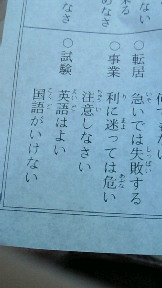 ○転居　急いでは失敗する
○事業　利に迷っては危い
注意しなさい
○試験　英語はよい
国語がいけない